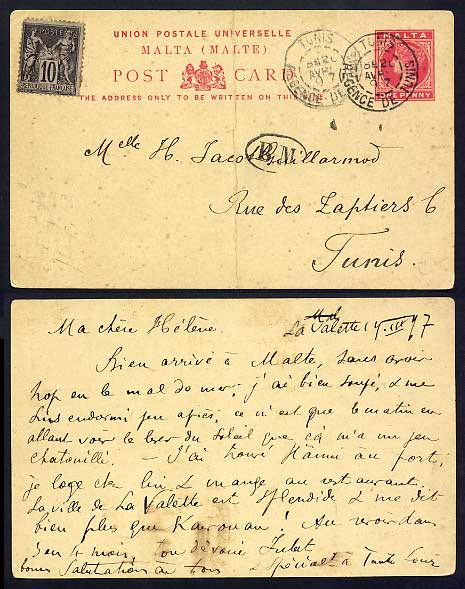 POSTE
10
REPUBLIQUE FRANÇAISE
UNION POSTALE UNIVERSELLE
MALTA (MALTE)
POST CARD
THE ADDRESS ONLY TO BE WRITTEN ON THIS
MALTA
ONE PENNY
TUNIS
TUNIS
REGENCE DE TUNIS
B.M
Melle H. Jacot Guillarmod
Rue des Zaptiers 6
Tunis.
Ma chère Hélène.
La Valette 17. III 97
Bien arrivé à Malte, sans avoir
trop eu le mal de mer; j'ai bien soupé, & me
suis endormi peu après, ce n'est que le matin en
allant voir le lever du soleil que ça m'a un peu
chatouillé. — J'ai trouvé au port,
je loge chez lui & mange au restaurant.
La ville de La Valette est splendide & me dit
bien plus que Kairouan! Au revoir dans
3 ou 4 mois, ton dévoué
bonnes Salutations à tous & spécialt à Tante